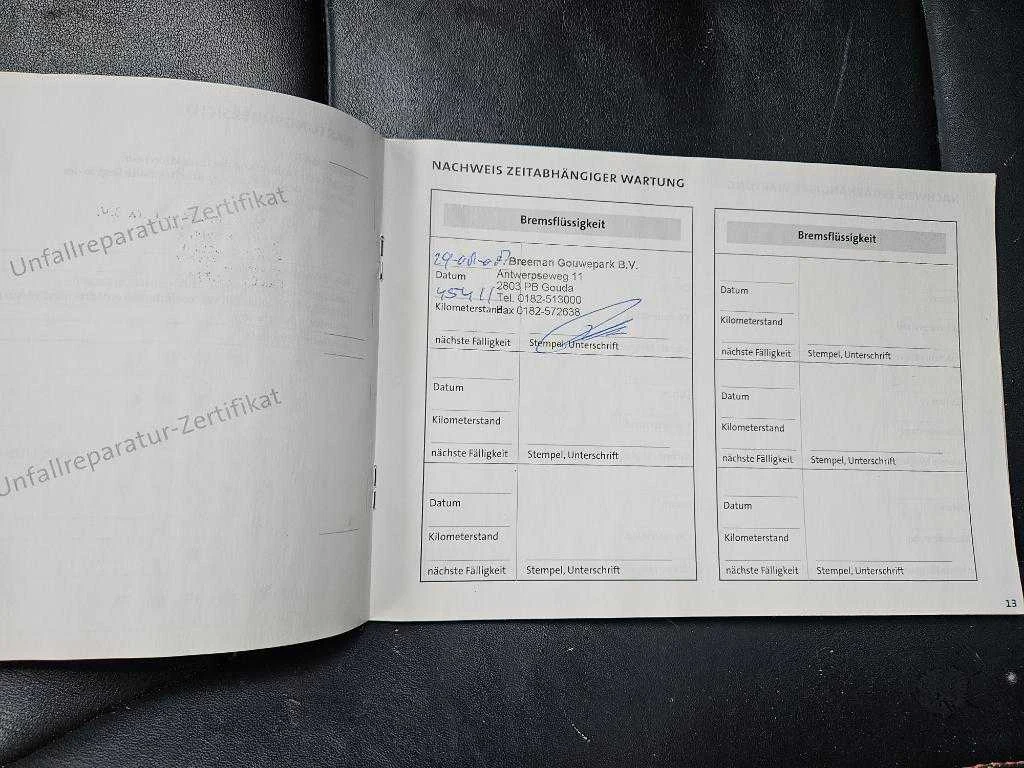 Unfallreparatur-Zertifikat
Unfallreparatur-Zertifikat
NACHWEIS ZEITABHÄNGIGER WARTUNG
Bremsflüssigkeit
Breeman Gouwepark B.V.
Datum
Antwerpseweg 11
2803 PB Gouda
45411
Tel. 0182-513000
Kilometerstand
Fax 0182-572638
nächste Fälligkeit
Stempel, Unterschrift
Datum
Kilometerstand
nächste Fälligkeit
Stempel, Unterschrift
Datum
Kilometerstand
nächste Fälligkeit
Stempel, Unterschrift
Bremsflüssigkeit
Datum
Kilometerstand
nächste Fälligkeit
Stempel, Unterschrift
Datum
Kilometerstand
nächste Fälligkeit
Stempel, Unterschrift
Datum
Kilometerstand
nächste Fälligkeit
Stempel, Unterschrift
13